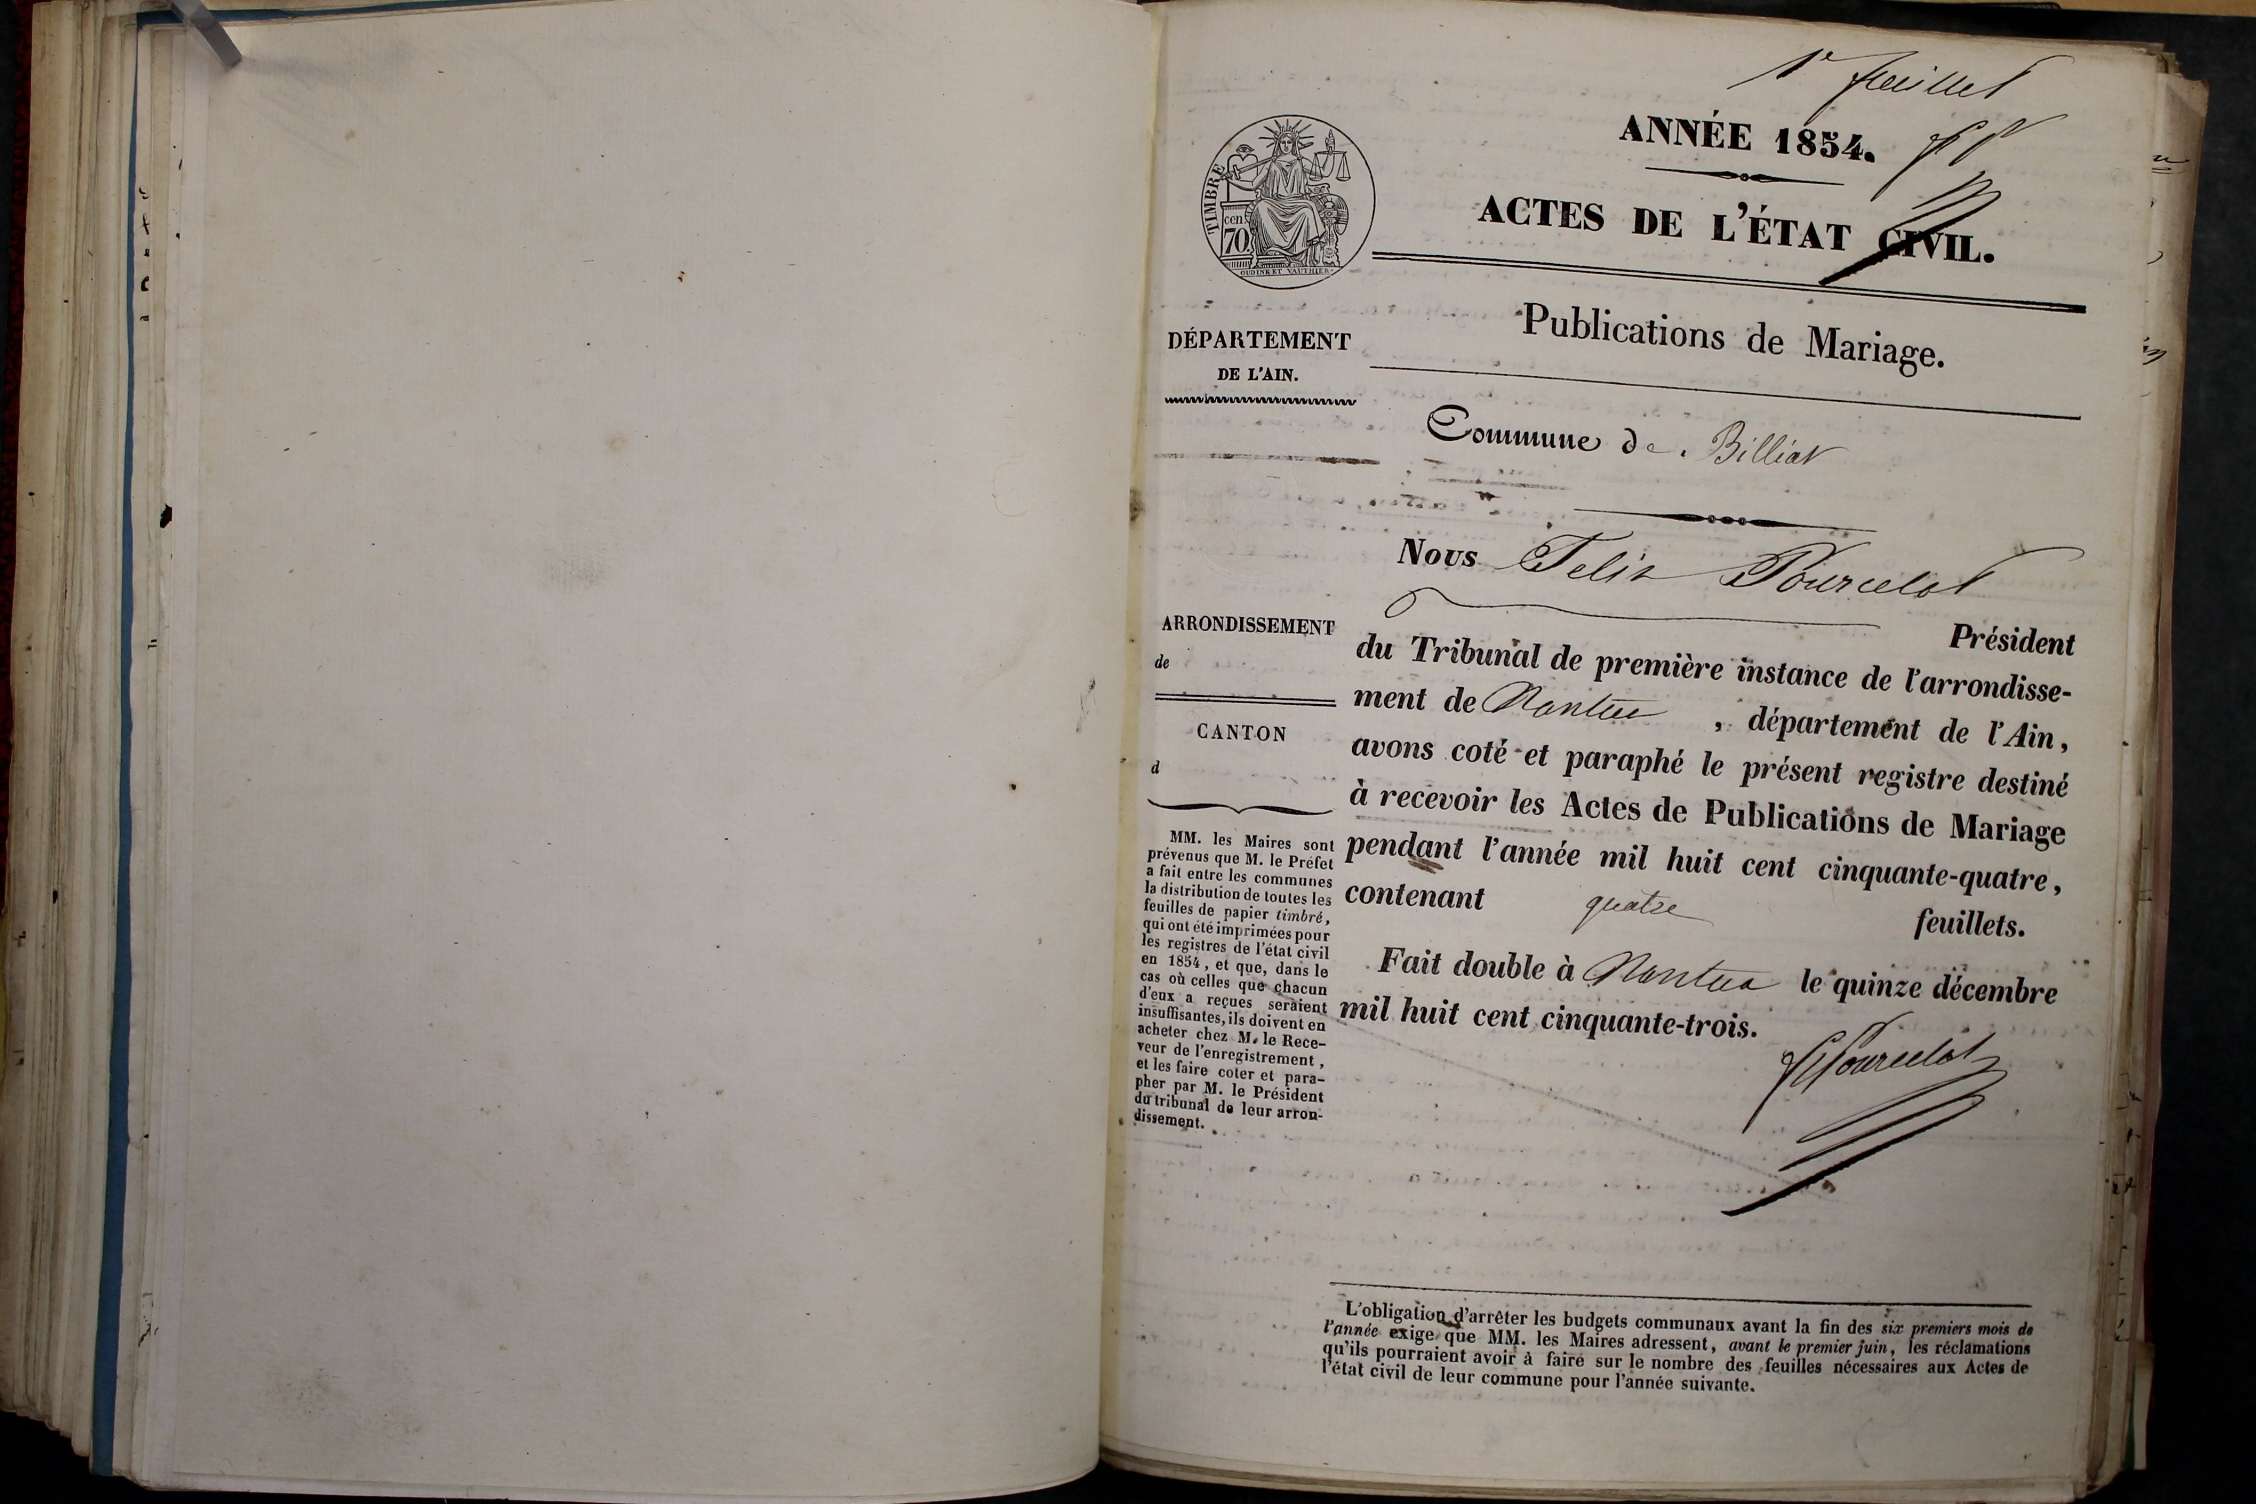 1er feuillet
ANNÉE 1854.
ACTES DE L'ÉTAT CIVIL.
TIMBRE
cen
70.
OUDINKET VAUTHIER.
Publications de Mariage.
DÉPARTEMENT
DE L'AIN.
Commune de Billiat
Nous Felix Pourcelot
Président
du Tribunal de première instance de l'arrondisse-
ment de Nantua , département de l'Ain,
avons coté et paraphé le présent registre destiné
à recevoir les Actes de Publications de Mariage
pendant l'année mil huit cent cinquante-quatre,
contenant quatre feuillets.
Fait double à Nantua le quinze décembre
mil huit cent cinquante-trois.
FPourcelot
ARRONDISSEMENT
de
CANTON
d
MM. les Maires sont
prévenus que M. le Préfet
a fait entre les communes
la distribution de toutes les
feuilles de papier timbré,
qui ont été imprimées pour
les registres de l'état civil
en 1854, et que, dans le
cas où celles que chacun
d'eux a reçues seraient
insuffisantes, ils doivent en
acheter chez M. le Rece-
veur de l'enregistrement,
et les faire coter et para-
pher par M. le Président
du tribunal de leur arron-
dissement.
L'obligation d'arrêter les budgets communaux avant la fin des six premiers mois de
l'année exige que MM. les Maires adressent, avant le premier juin, les réclamations
qu'ils pourraient avoir à faire sur le nombre des feuilles nécessaires aux Actes de
l'état civil de leur commune pour l'année suivante.